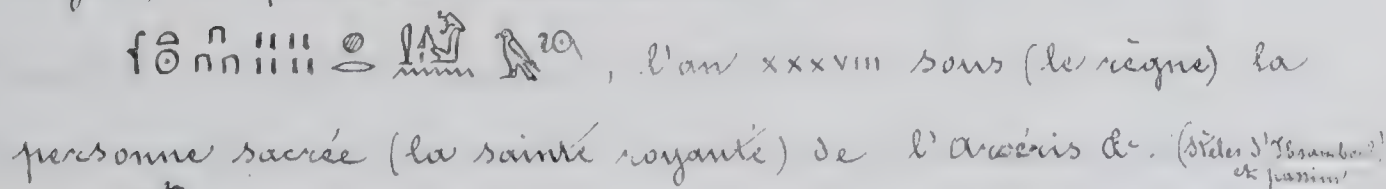 𓆳𓏏𓊖 𓎆𓎆𓎆 𓏤𓏤𓏤𓏤𓏤𓏤𓏤𓏤 𓐍𓂋 , l'an xxxviii sous (le règne) la
personne sacrée (la sainte royauté) de l'Arœris &c. (Stèles d'Ibsamboul
et passim